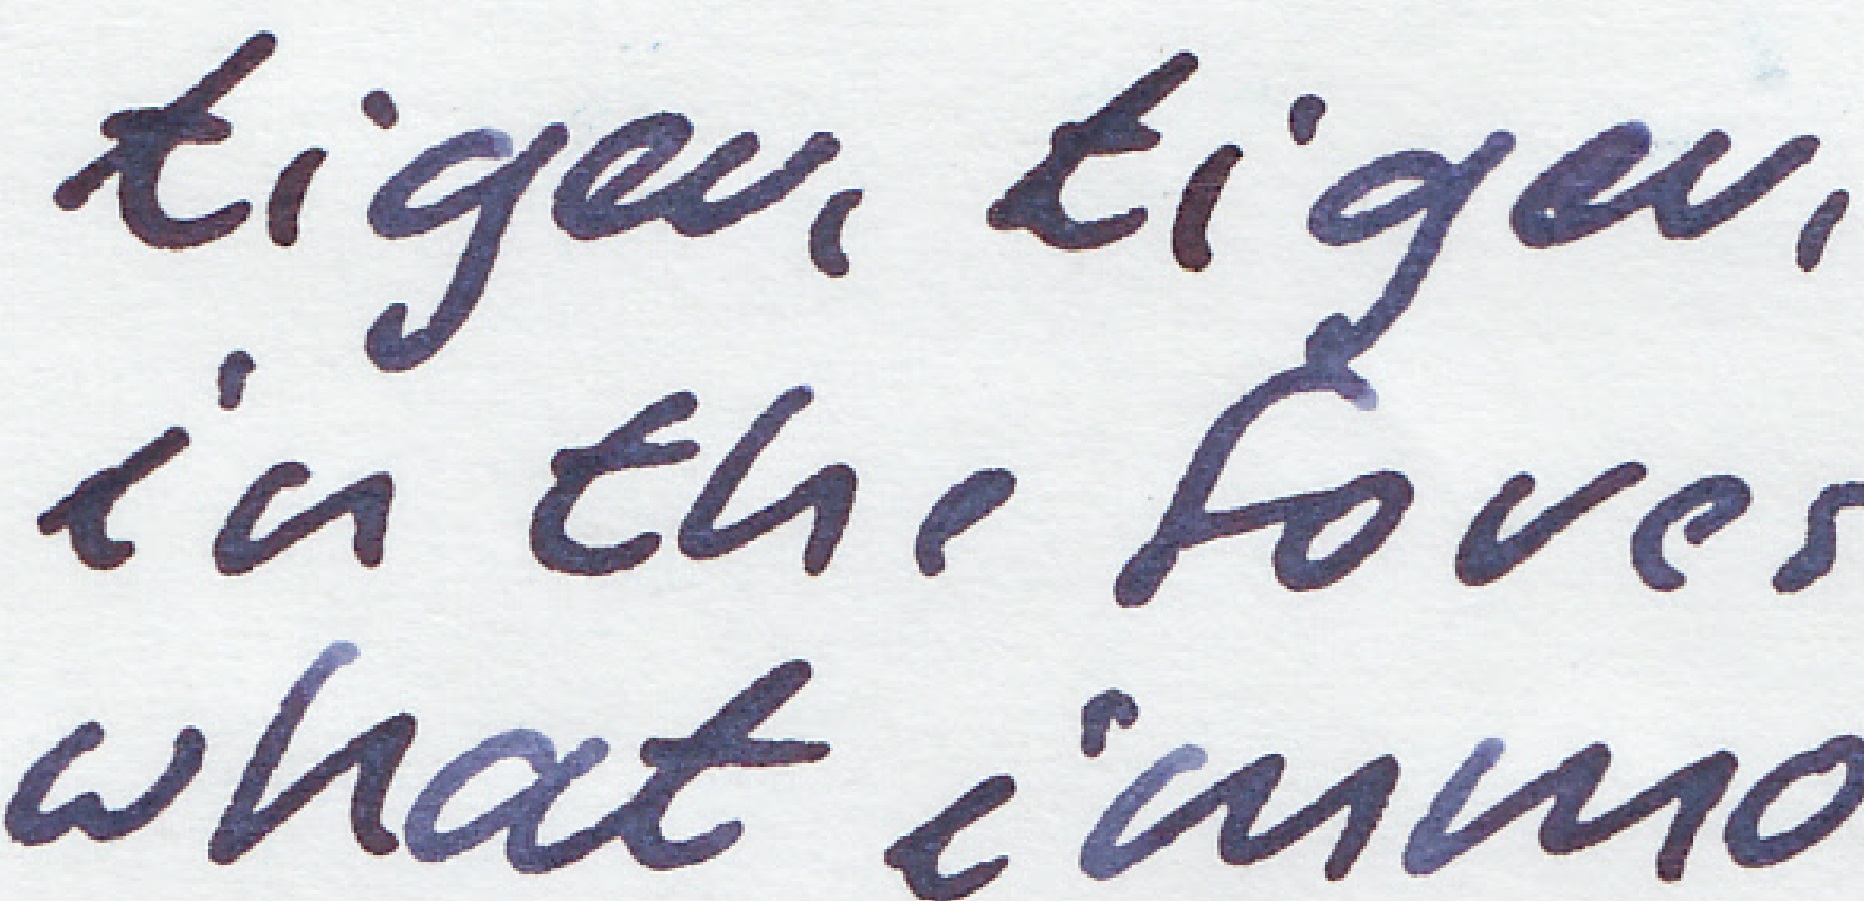 tiger, tiger,
in the fores
what immo